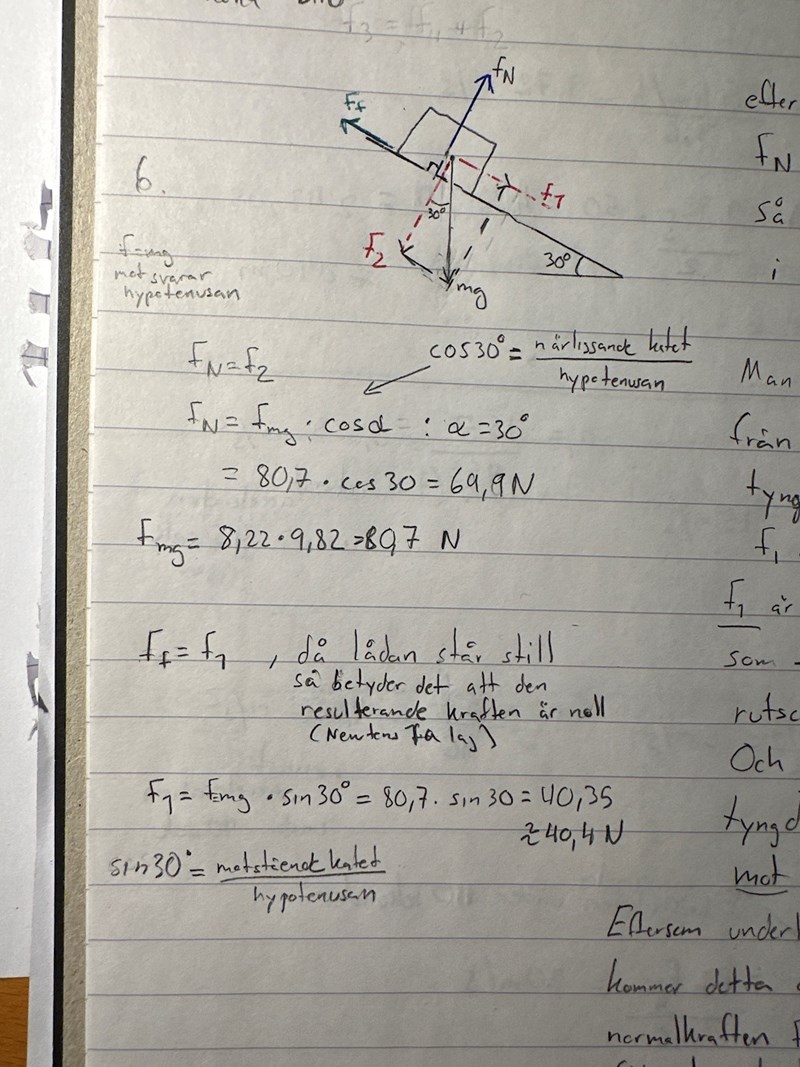 F₃ = F₁ + F₂
fN
Ff
6.
F₁
30°
F₂
30°
mg
F=mg
motsvarar
hypotenusan
cos30° = närliggande katet / hypotenusan
FN = F₂
FN = Fmg · cosα : α = 30°
= 80,7 · cos 30 = 69,9N
Fmg = 8,22 · 9,82 = 80,7 N
Ff = F₁ , då lådan står still
så betyder det att den
resulterande kraften är noll
(Newtons 1a lag)
F₁ = Fmg · sin30° = 80,7 · sin 30 = 40,35
≈ 40,4 N
sin30° = motstående katet / hypotenusan
efter
FN
så
i
Man
från
tyng
F₁
F₁ är
som
rutsc
Och
tyngd
mot
Eftersom underl
kommer detta
normalkraften F